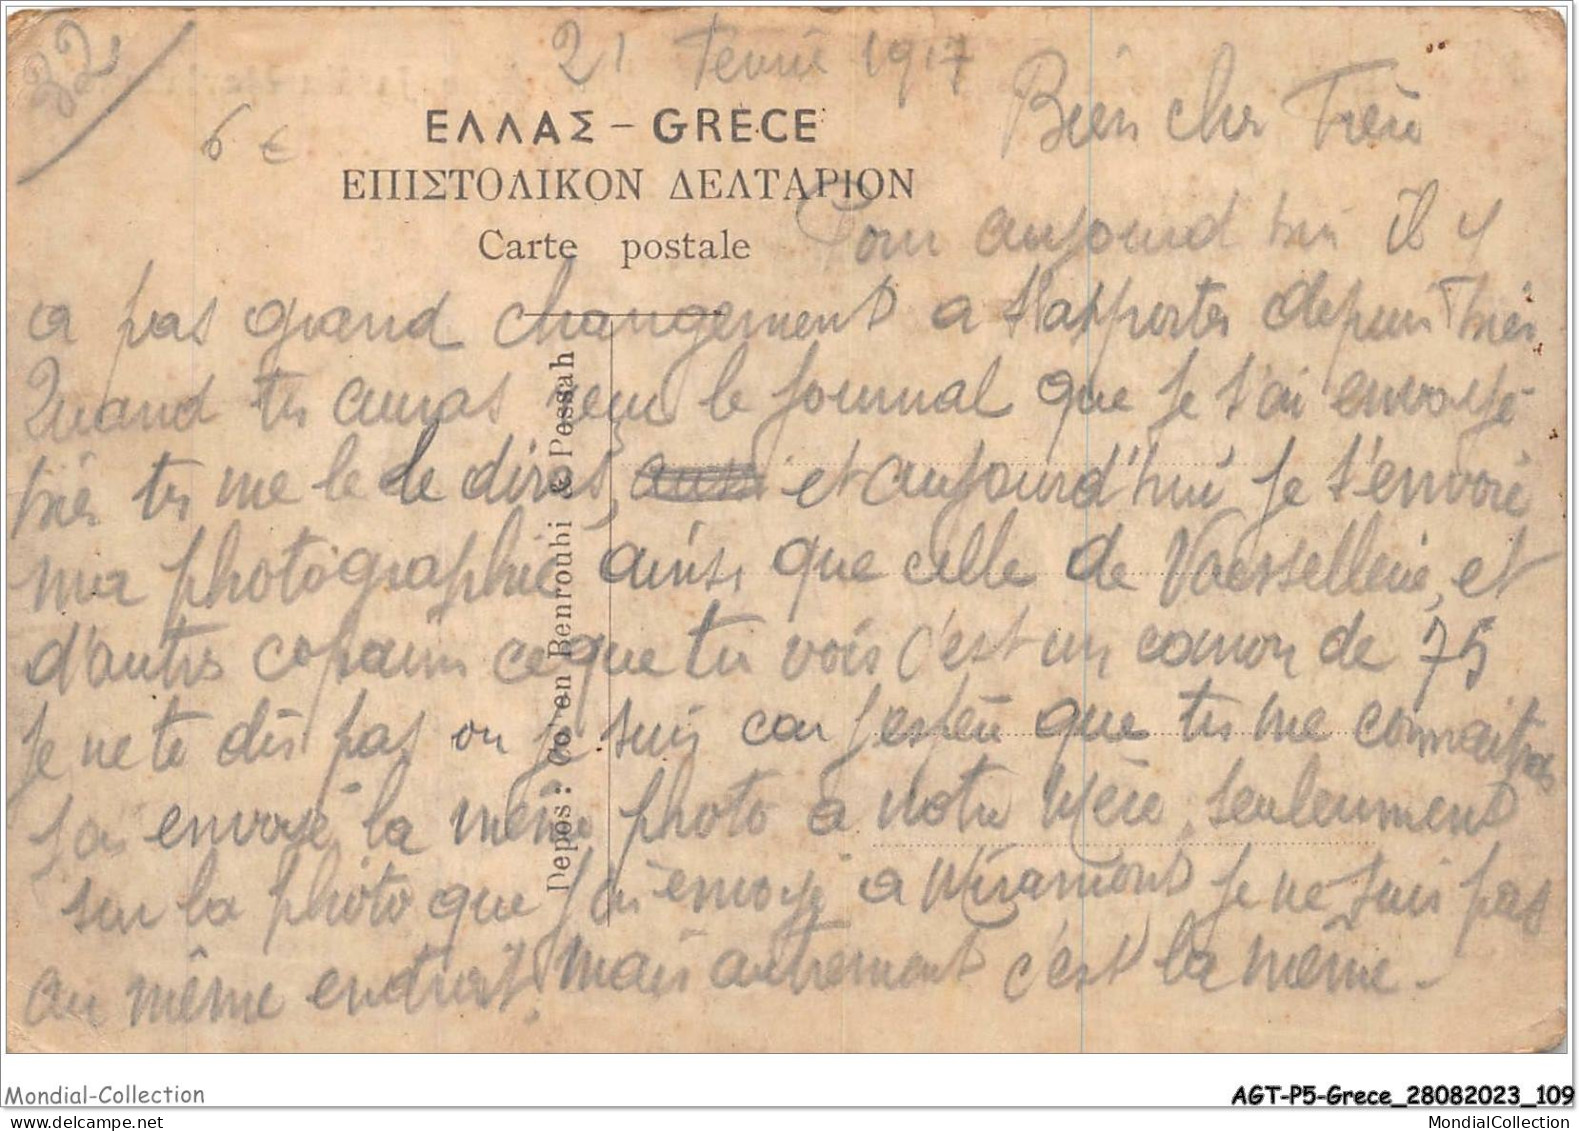 32
21 Fevrie 1917
6 €
ΕΛΛΑΣ – GRÈCE
ΕΠΙΣΤΟΛΙΚΟΝ ΔΕΛΤΑΡΙΟΝ
Carte postale
Bien cher Frère
Pour aujourd hui il y
a pas grand changement a t'apporter depuis hier
Quand tu auras reçu le journal que je t'ai envoyé
hier tu me le le diras, et aujourd'hui je t'envoie
ma photographie ainsi que celle de et
d'autres copains ce que tu vois c'est un canon de 75
je ne te dis pas ou je suis car j'espère que tu me connaitras
j'ai envoyé la même photo a notre Mère, seulement
sur la photo que j'ai envoyé a Miramont je ne suis pas
au même endroit, mais autrement c'est la même -
Depos: Co'en Benroubi & Pessah
Mondial-Collection
AGT-P5-Grece_28082023_109
MondialCollection